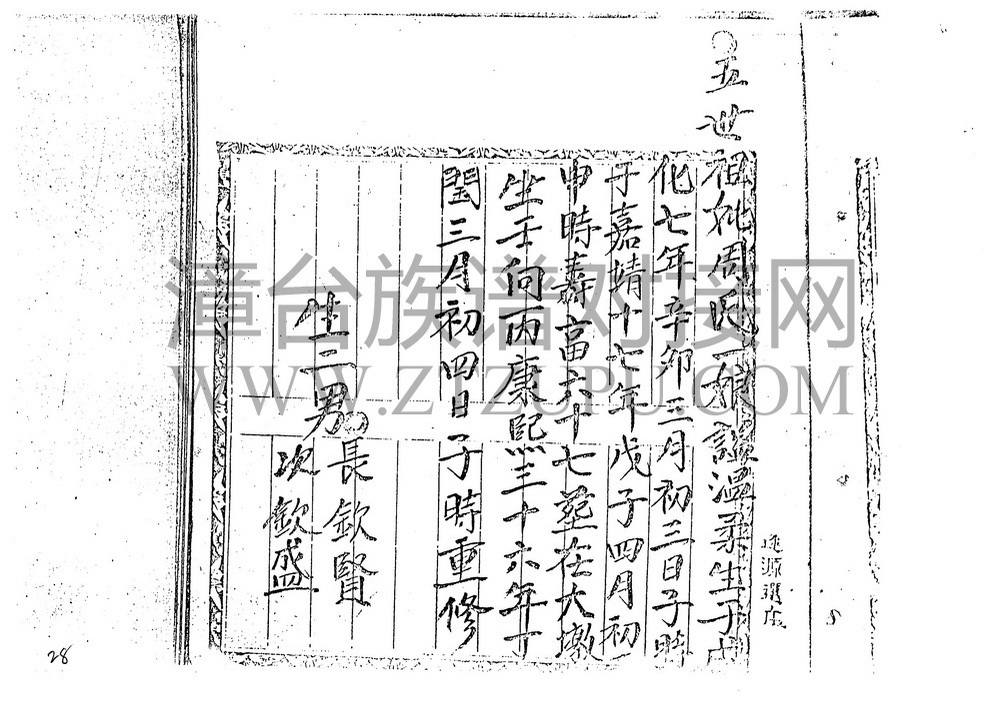 五世祖妣周氏一娘諡溫柔生于成
化七年辛卯三月初三日子時
于嘉靖十七年戊子四月初
申時壽畐六十七塟在大墩
坐壬向丙康熙三十六年丁
閏三月初四日子時重修
生二男
長欽賢
次欽盛
漳台族谱对接网
WWW.ZTZUPU.COM
28